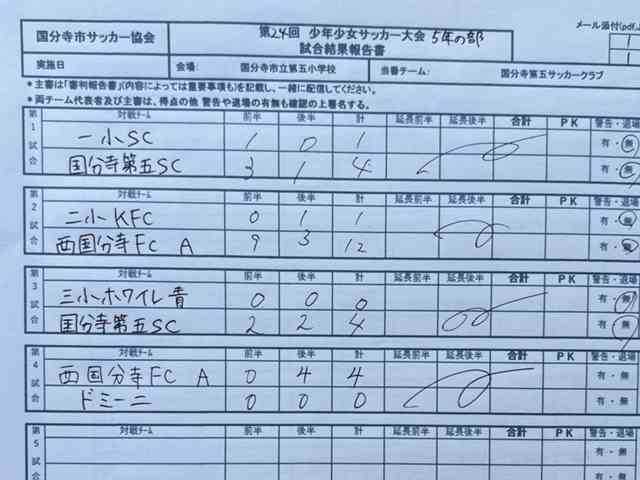 メール添付(pdf,
国分寺市サッカー協会 第24回 少年少女サッカー大会 5年の部
試合結果報告書
1
1
実施日 会場: 国分寺市立第五小学校 当番チーム: 国分寺第五サッカークラブ
*主審は「審判報告書」(内容によっては重要事項も)を記載し、一緒に配信してください。
*両チーム代表者及び主審は、得点の他 警告や退場の有無も確認の上署名する。
第1試合 対戦チーム 前半 後半 計 延長前半 延長後半 合計 PK 警告・退場
一小SC 1 0 1 有・無
国分寺第五SC 3 1 4 有・無
第2試合 対戦チーム 前半 後半 計 延長前半 延長後半 合計 PK 警告・退場
二小KFC 0 1 1 有・無
西国分寺FC A 9 3 12 有・無
第3試合 対戦チーム 前半 後半 計 延長前半 延長後半 合計 PK 警告・退場
三小ホワイレ青 0 0 0 有・無
国分寺第五SC 2 2 4 有・無
第4試合 対戦チーム 前半 後半 計 延長前半 延長後半 合計 PK 警告・退場
西国分寺FC A 0 4 4 有・無
ドミーニ 0 0 0 有・無
第5試 対戦チーム 前半 後半 計 延長前半 延長後半 合計 PK 警告・退場
有・無